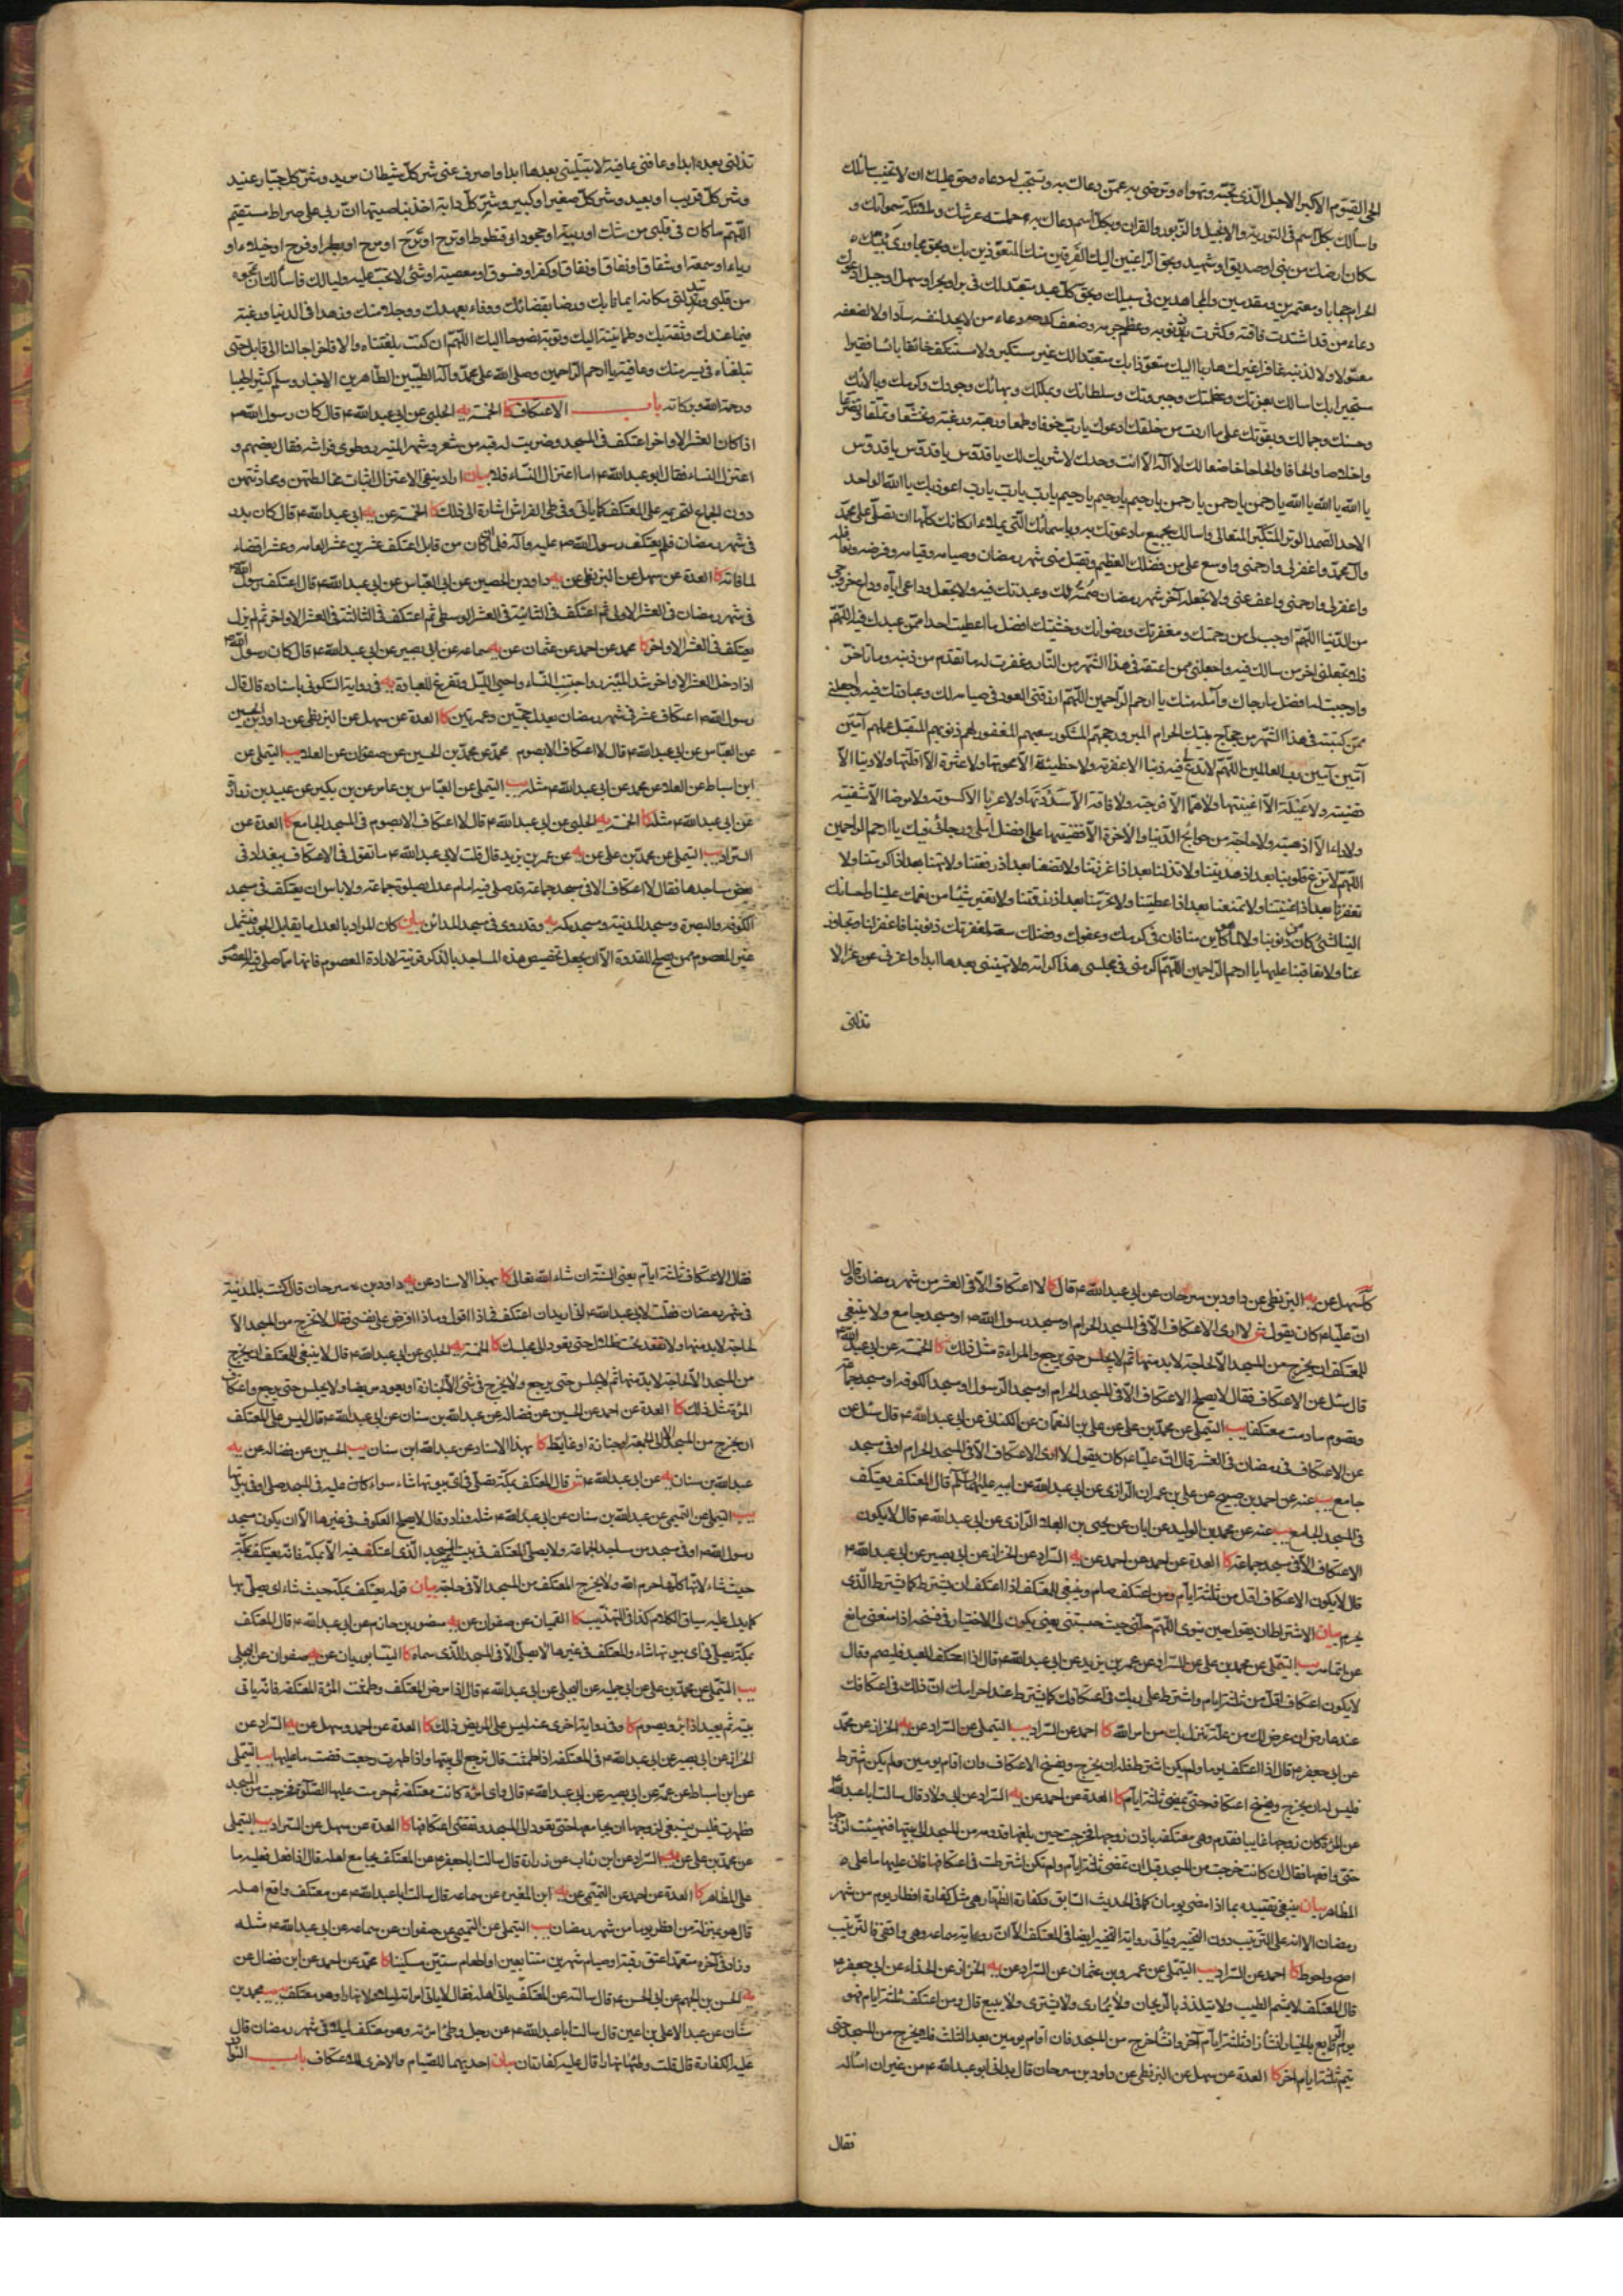 الحي القيوم الاكبر الاجل الذي تحبه وتهواه وترضى به عمن دعاك به وتستجيب له دعاه وحق عليك ان لا تخيب سائلك
واسألك بكل اسم في التورية والانجيل والزبور والقران وبكل اسم دعاك به حملة عرشك وملائكة سمواتك و
سكان ارضك من نبي او صديق او شهيد وبحق الراغبين اليك الفرقين منك المتعوذين بك وبحق مجاوري بيتك
الحرام حجاجا ومعتمرين ومقدسين والمجاهدين في سبيلك وبحق كل عبد متعبد لك في بر او بحر او سهل او جبل ادعوك
دعاء من قد اشتدت فاقته وكثرت ذنوبه وعظم جرمه وضعف كدحه دعاء من لا يجد لنفسه سادا ولا لضعفه
معولا ولا لذنبه غافرا غيرك هاربا اليك متعوذا بك متعبدا لك غير مستكبر ولا مستنكف خائفا بائسا فقيرا
مستجيرا بك اسالك بعزتك وعظمتك وجبروتك وسلطانك وبملكك وببهائك وجودك وكرمك وبالائك
وحسنك وجمالك وبقوتك على ما اردت من خلقك ادعوك يا رب خوفا وطمعا ورهبة ورغبة وتخشعا وتملقا وتضرعا
واخلاصا والحافا والحاحا خاضعا لك لا اله الا انت وحدك لا شريك لك يا قدوس يا قدوس يا قدوس
يا الله يا الله يا الله يا رحمن يا رحمن يا رحمن يا رحيم يا رحيم يا رحيم يا رب يا رب يا رب اعوذ بك يا الله الواحد
الاحد الصمد الوتر المتكبر المتعالي واسالك بجميع ما دعوتك به وباسمائك التي تملاء اركانك كلها ان تصلي على محمد
وآل محمد واغفر لي وارحمني واوسع علي من فضلك العظيم وتقبل مني شهر رمضان وصيامه وقيامه وفرضه ونوافله
واغفر لي وارحمني واعف عني ولا تجعله آخر شهر رمضان صمته لك وعبدتك فيه ولا تجعل وداعي اياه وداع خروجي
من الدنيا اللهم اوجب لي من رحمتك ومغفرتك ورضوانك وخشيتك افضل ما اعطيت احدا ممن عبدك فيه اللهم
فلا تجعلني اخسر من سالك فيه واجعلني ممن اعتقته في هذا الشهر من النار وغفرت له ما تقدم من ذنبه وما تاخر
واوجبت له افضل ما رجاك وامله منك يا ارحم الراحمين اللهم ارزقني العود في صيامه لك وعبادتك فيه واجعلني
ممن كتبته في هذا الشهر من حجاج بيتك الحرام المبرور حجهم المشكور سعيهم المغفور لهم ذنوبهم المتقبل عملهم آمين
آمين آمين رب العالمين اللهم لا تدع لي فيه ذنبا الا غفرته ولا خطيئة الا محوتها ولا عثرة الا اقلتها ولا دينا الا
قضيته ولا عيلة الا اغنيتها ولا هما الا فرجته ولا فاقة الا سددتها ولا عريا الا كسوته ولا مرضا الا شفيته
ولا داء الا اذهبته ولا حاجة من حوائج الدنيا والاخرة الا قضيتها على افضل املي ورجائي فيك يا ارحم الراحمين
اللهم لا تزغ قلوبنا بعد اذ هديتنا ولا تذلنا بعد اذ اعززتنا ولا تضعنا بعد اذ رفعتنا ولا تهنا بعد اذ اكرمتنا ولا
تفقرنا بعد اذ اغنيتنا ولا تمنعنا بعد اذ اعطيتنا ولا تحرمنا بعد اذ رزقتنا ولا تغير شيئا من نعمك علينا واحسانك
الينا لشئ كان من ذنوبنا ولا لما هو كائن منا فان في كرمك وعفوك وفضلك سعة لمغفرتك ذنوبنا فاغفر لنا وتجاوز
عنا ولا تعاقبنا عليها يا ارحم الراحمين اللهم اكرمني في مجلسي هذا كرامة لا تهينني بعدها ابدا واعزني عزا لا
تذلني
تذلني بعده ابدا وعافني عافية لا تبتليني بعدها ابدا واصرف عني شر كل شيطان مريد وشر كل جبار عنيد
وشر كل قريب او بعيد وشر كل صغير او كبير وشر كل دابة اخذ بناصيتها ان ربي على صراط مستقيم
اللهم ما كان في قلبي من شك او ريبة او جحود او قنوط او فرح او مرح او بطر او فرح او خيلاء او
رياء او سمعة او شقاق او نفاق او كفر او فسوق او معصية او شئ لا تحب عليه وليا لك فاسألك ان تمحوه
من قلبي وتبدلني مكانه ايمانا بك ورضا بقضائك ووفاء بعهدك ووجلا منك وزهدا في الدنيا ورغبة
فيما عندك وثقة بك وطمانينة اليك وتوبة نصوحا اليك اللهم ان كنت بلغتناه والا فاخر اجالنا الى قابل حتى
تبلغناه في يسر منك وعافية يا ارحم الراحمين وصلى الله على محمد واله الطيبين الطاهرين الاخيار وسلم كثيرا
ورحمة الله وبركاته باب الاعتكاف كا الخمسة يه الحلبي عن ابي عبد الله ع قال كان رسول الله ص
اذا كان العشر الاواخر اعتكف في المسجد وضربت له قبه من شعر وشمر الميزر وطوى فراشه فقال بعضهم و
اعتزل النساء فقال ابو عبد الله ع اما اعتزال النساء فلا بيان اراد بنفي الاعتزال اثبات مخالطتهن ومحادثتهن
دون الجماع لتحريمه على المعتكف كما ياتي وفي طي الفراش اشارة الى ذلك كا الخمسة عن يه ابي عبد الله ع قال كان بدر
في شهر رمضان فلم يعتكف رسول الله ص عليه واله فلما ان كان من قابل اعتكف عشرين عشر العامه وعشر اقضاء
لما فاته كا العدة عن سهل عن البزنطي عن يه داود بن الحصين عن ابي العباس عن ابي عبد الله ع قال اعتكف رسول الله
في شهر رمضان في العشر الاولى ثم اعتكف في الثانية في العشر الوسطى ثم اعتكف في الثالثة في العشر الاواخر ثم لم يزل
يعتكف في العشر الاواخر كا محمد عن احمد عن عثمان عن يه سماعه عن ابي بصير عن ابي عبد الله ع قال كان رسول الله
اذا دخل العشر الاواخر شد الميزر واجتنب النساء واحيى الليل وتفرغ للعبادة يه في رواية السكوني باسناده قال قال
رسول الله ص اعتكاف عشر في شهر رمضان يعدل حجتين وعمرتين كا العدة عن سهل عن البزنطي عن داود بن الحصين
عن العباس عن ابي عبد الله ع قال لا اعتكاف الا بصوم محمد عن محمد بن الحسين عن صفوان عن العلا يب التيملي عن
ابن اسباط عن العلا عن محمد عن ابي عبد الله ع مثله يب التيملي عن العباس بن عامر عن بن بكير عن عبيد بن زرارة
عن ابي عبد الله ع مثله كا الخمسة يه الحلبي عن ابي عبد الله ع قال لا اعتكاف الا بصوم في المسجد الجامع كا العدة عن
السراد يب التيملي عن محمد بن علي عن يه عن عمر بن يزيد قال قلت لابي عبد الله ع ما تقول في الاعتكاف ببغداد في
بعض مساجدها فقال لا اعتكاف الا في مسجد جماعة قد صلى فيه امام عدل صلوة جماعة ولا باس ان يعتكف في مسجد
الكوفه والبصرة ومسجد المدينة ومسجد مكه يه وقد روى في مسجد المدائن بيان كان المراد بالعدل ما يقابل الجور فيشمل
غير المعصوم ممن يصلح للقدوة الا ان يجعل تخصيص هذه المساجد بالذكر قرينة لارادة المعصوم فانها مما صلى فيه المعصوم
كا سهل عن يه البزنطي عن داود بن سرحان عن ابي عبد الله ع قال كا لا اعتكاف الا في العشر من شهر رمضان وقال
ان عليا ع كان يقول ش لا ارى الاعتكاف الا في المسجد الحرام او مسجد رسول الله ص او مسجد جامع ولا ينبغي
للمعتكف ان يخرج من المسجد الا لحاجة لا بد منها ثم لا يجلس حتى يرجع والمراءة مثل ذلك كا الخمسة عن ابي عبد الله
قال سئل عن الاعتكاف فقال لا يصلح الاعتكاف الا في المسجد الحرام او مسجد الرسول او مسجد الكوفه او مسجد جماعة
وتصوم ما دمت معتكفا يب التيملي عن محمد بن علي عن علي بن النعمان عن الكناني عن ابي عبد الله ع قال سئل عن
عن الاعتكاف في رمضان في العشر قال ان عليا ع كان يقول لا ارى الاعتكاف الا في المسجد الحرام او في مسجد
جامع يب عنه عن احمد بن صبيح عن علي بن عمران الرازي عن ابي عبد الله عن ابيه عليهما السلام قال المعتكف يعتكف
في المسجد الجامع يب عنه عن محمد بن الوليد عن ابان عن يحيى بن العلا الرازي عن ابي عبد الله ع قال لا يكون
الاعتكاف الا في مسجد جماعة كا العدة عن احمد عن احمد عن يه السراد عن الخزاز عن ابي بصير عن ابي عبد الله ع
قال لا يكون الاعتكاف اقل من ثلثة ايام ومن اعتكف صام وينبغي للمعتكف اذا اعتكف ان يشترط كما يشترط الذي
يحرم بيان الاشتراط ان يقول حين ينوي اللهم حلني حيث حبستني يعني يكون لي الاختيار في فسخه اذا منعني مانع
عن اتمامه يب التيملي عن محمد بن علي عن السراد عن عمر بن يزيد عن ابي عبد الله ع قال اذا اعتكف العبد فليصم وقال
لا يكون اعتكاف اقل من ثلثة ايام واشترط على ربك في اعتكافك كما تشترط عند احرامك ان ذلك في اعتكافك
عند عارض ان عرض لك من علة تنزل بك من امر الله كا احمد عن السراد يب التيملي عن السراد عن يه الخزاز عن محمد
عن ابي جعفر ع قال اذا اعتكف يوما ولم يكن اشترط فله ان يخرج ويفسخ الاعتكاف وان اقام يومين ولم يكن اشترط
فليس له ان يخرج ويفسخ اعتكافه حتى يمضي ثلثة ايام كا العدة عن احمد عن يه السراد عن ابي ولاد قال سالت ابا عبد الله
عن المرءة كان زوجها غايبا فقدم وهي معتكفه باذن زوجها فخرجت حين بلغها قدومه من المسجد الى بيتها فتهيئت لزوجها
حتى واقعها فقال ان كانت خرجت من المسجد قبل ان تمضي ثلثة ايام ولم تكن اشترطت في اعتكافها فان عليها ما على
المظاهر بيان ينبغي تقييده بما اذا مضى يومان كما في الحديث السابق وكفارة الظهار هي مثل كفارة افطار يوم من شهر
رمضان الا انه على الترتيب دون التخيير وياتي رواية التخيير ايضا في المعتكف الا ان رواية سماعه وهي واقفي فالترتيب
اصح واحوط كا احمد عن السراد يب التيملي عن عمرو بن عثمان عن السراد عن يه الخزاز عن الحذاء عن ابي جعفر ع
قال المعتكف لا يشم الطيب ولا يتلذذ بالريحان ولا يماري ولا يشتري ولا يبيع قال ومن اعتكف ثلثة ايام فهو
يوم الرابع بالخيار ان شاء زاد ثلثة ايام آخر وان شاء خرج من المسجد فان اقام يومين بعد الثلث فلا يخرج من المسجد حتى
يتم ثلثة ايام اخر كا العدة عن سهل عن البزنطي عن داود بن سرحان قال بداني ابو عبد الله ع من غير ان اسأله
فقال
فقال الاعتكاف ثلثة ايام يعني السنة ان شاء الله تعالى كا بهذا الاسناد عن يه داود بن سرحان قال كنت بالمدينة
في شهر رمضان فقلت لابي عبد الله ع اني اريدان اعتكف فماذا اقول وماذا افرض على نفسي فقال لا تخرج من المسجد الا
لحاجة لا بد منها ولا تقعد تحت ظلال حتى تعود الى مجلسك كا الخمسة يه الحلبي عن ابي عبد الله ع قال لا ينبغي للمعتكف ان يخرج
من المسجد الا لحاجة لا بد منها ثم لا يجلس حتى يرجع ولا يخرج في شئ الا لجنازة او يعود مريضا ولا يجلس حتى يرجع واعتكاف
المرءة مثل ذلك كا العدة عن احمد عن الحسين عن فضاله عن عبد الله بن سنان عن ابي عبد الله ع قال ليس على المعتكف
ان يخرج من المسجد الا الى الجمعة او جنازة او غايط كا بهذا الاسناد عن عبد الله ابن سنان يب الحسين عن فضاله عن يه
عبد الله بن سنان يه عن ابي عبد الله ع ش قال المعتكف بمكة يصلي في اي بيوتها شاء سواء كان عليه في المسجد صلى او في بيوتها
يب التيملي عن التميمي عن عبد الله بن سنان عن ابي عبد الله ع مثله وزاد وقال لا يصلح العكوف في غيرها الا ان يكون مسجد
رسول الله ص او في مسجد من مساجد الجماعة ولا يصلي المعتكف في بيت غير المسجد الذي اعتكف فيه الا بمكة فانه يعتكف بمكة
حيث شاء لانها كلها حرم الله ولا يخرج المعتكف من المسجد الا في حاجة بيان قوله يعتكف بمكة حيث شاء اي يصلي بها
كما يدل عليه سياق الكلام كذا في التهذيب كا القميان عن صفوان عن يه منصور بن حازم عن ابي عبد الله ع قال المعتكف
بمكة يصلي في اي بيوتها شاء والمعتكف في غيرها لا يصلي الا في المسجد الذي سماه كا النيسابوريان عن يه صفوان عن البجلي
يب التيملي عن محمد بن علي عن ابي جميله عن البجلي عن ابي عبد الله ع قال اذا مرض المعتكف وطمثت المرءة المعتكفه فانه ياتي
بيته ثم يعيد اذا برء ويصوم كا وفي رواية اخرى عنه ليس على المريض ذلك كا العدة عن احمد وسهل عن يه السراد عن
الخزاز عن ابي بصير عن ابي عبد الله ع في المعتكفه اذا طمثت قال ترجع الى بيتها واذا طهرت رجعت فقضت ما عليها يب التيملي
عن ابن اسباط عن عمه عن ابي بصير عن ابي عبد الله ع قال واي امرءة كانت معتكفه ثم حرمت عليها الصلوة فخرجت من المسجد
فطهرت فليس ينبغي لزوجها ان يجامعها حتى تعود الى المسجد وتقضي اعتكافها كا العدة عن سهل عن السراد يب التيملي
عن محمد بن علي عن يه السراد عن ابن رئاب عن زرارة قال سالت ابا جعفر ع عن المعتكف يجامع اهله قال اذا فعل فعليه ما
على المظاهر كا العدة عن احمد عن التميمي عن يه ابن المغيره عن سماعه قال سالت ابا عبد الله ع عن معتكف واقع اهله
قال هو بمنزلة من افطر يوما من شهر رمضان يب التيملي عن التميمي عن صفوان عن سماعه عن ابي عبد الله ع مثله
وزاد في آخره متعمدا عتق رقبة او صيام شهرين متتابعين او اطعام ستين مسكينا كا محمد عن احمد عن ابن فضال عن
يه الحسن بن الجهم عن ابي الحسن ع قال سالته عن المعتكف ياتي اهله فقال لا ياتي امراته ليلا ولا نهارا وهو معتكف يب محمد بن
سنان عن عبد الاعلى بن اعين قال سالت ابا عبد الله ع عن رجل وطئ امرءته وهو معتكف ليلا في شهر رمضان قال
عليه الكفارة قال قلت وطئها نهارا قال عليه كفارتان بيان احديهما للصيام والاخرى للاعتكاف باب